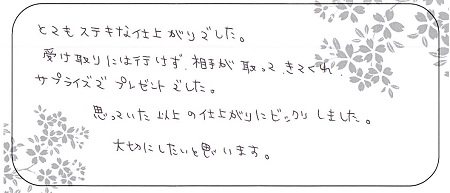 とてもステキな仕上がりでした。
受け取りには行けず、相手が取ってきてくれ、
サプライズでプレゼントでした。
思っていた以上の仕上がりにビックリしました。
大切にしたいと思います。